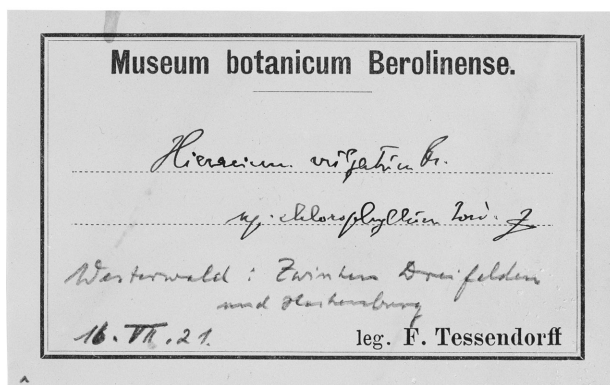 Museum botanicum Berolinense.
Hieracium vulgatum Fr.
ssp. chlorophyllum Jord. Z
Westerwald: Zwischen Dreifelden
und Hachenburg
16. VII. 21.
leg. F. Tessendorff